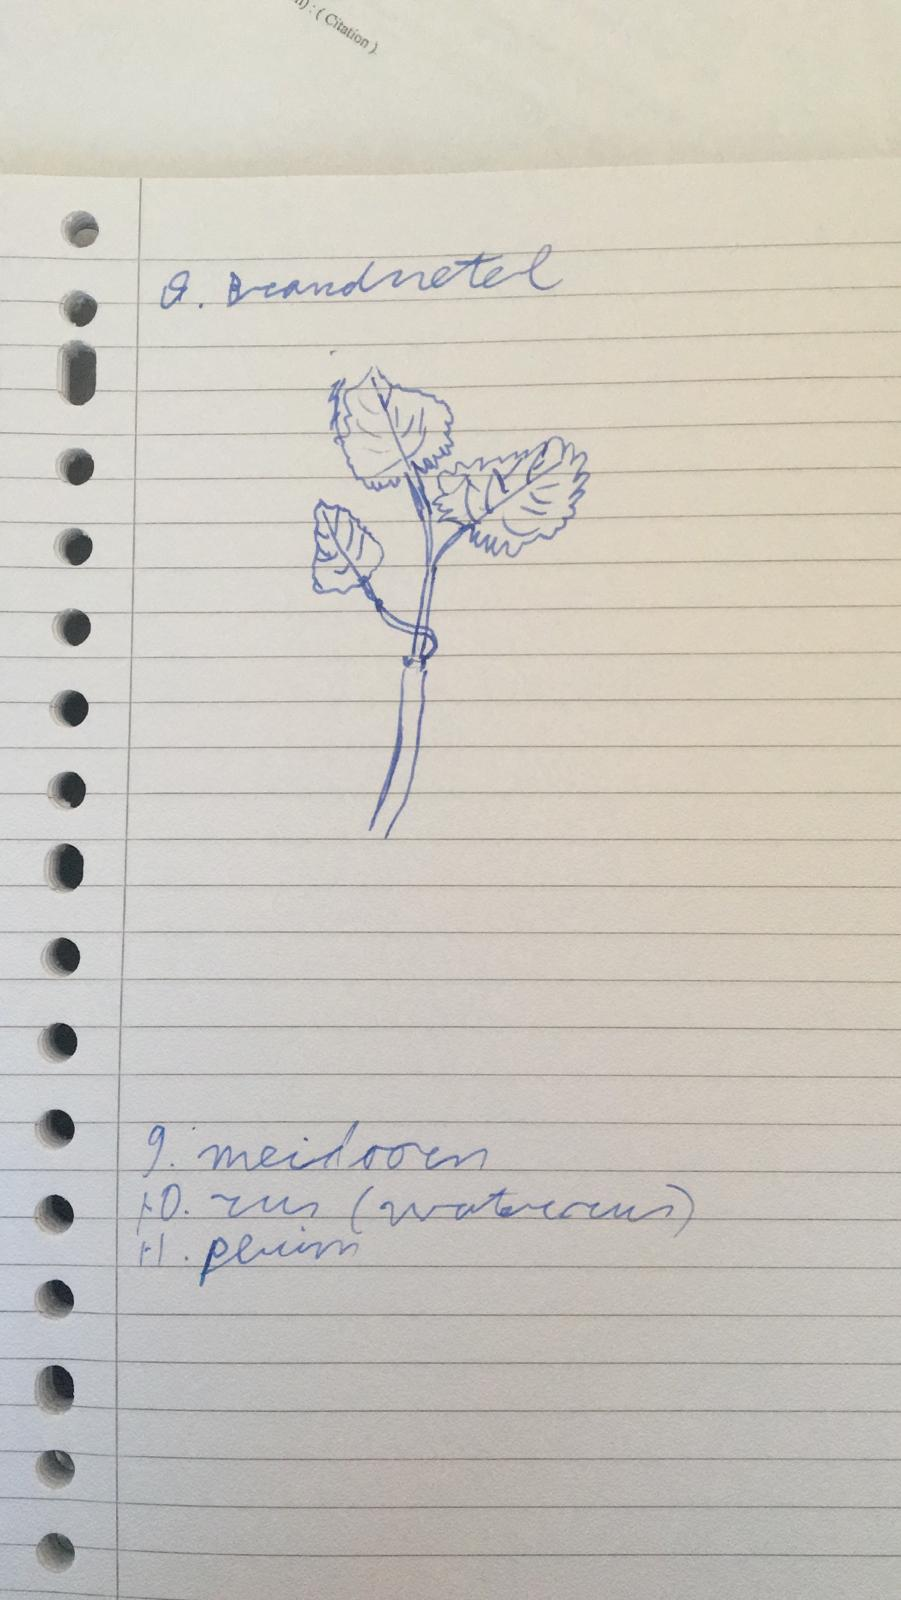 ): ( Citation )
8. Brandnetel
9. meidoorn
10. rus (waterrus)
11. pluim